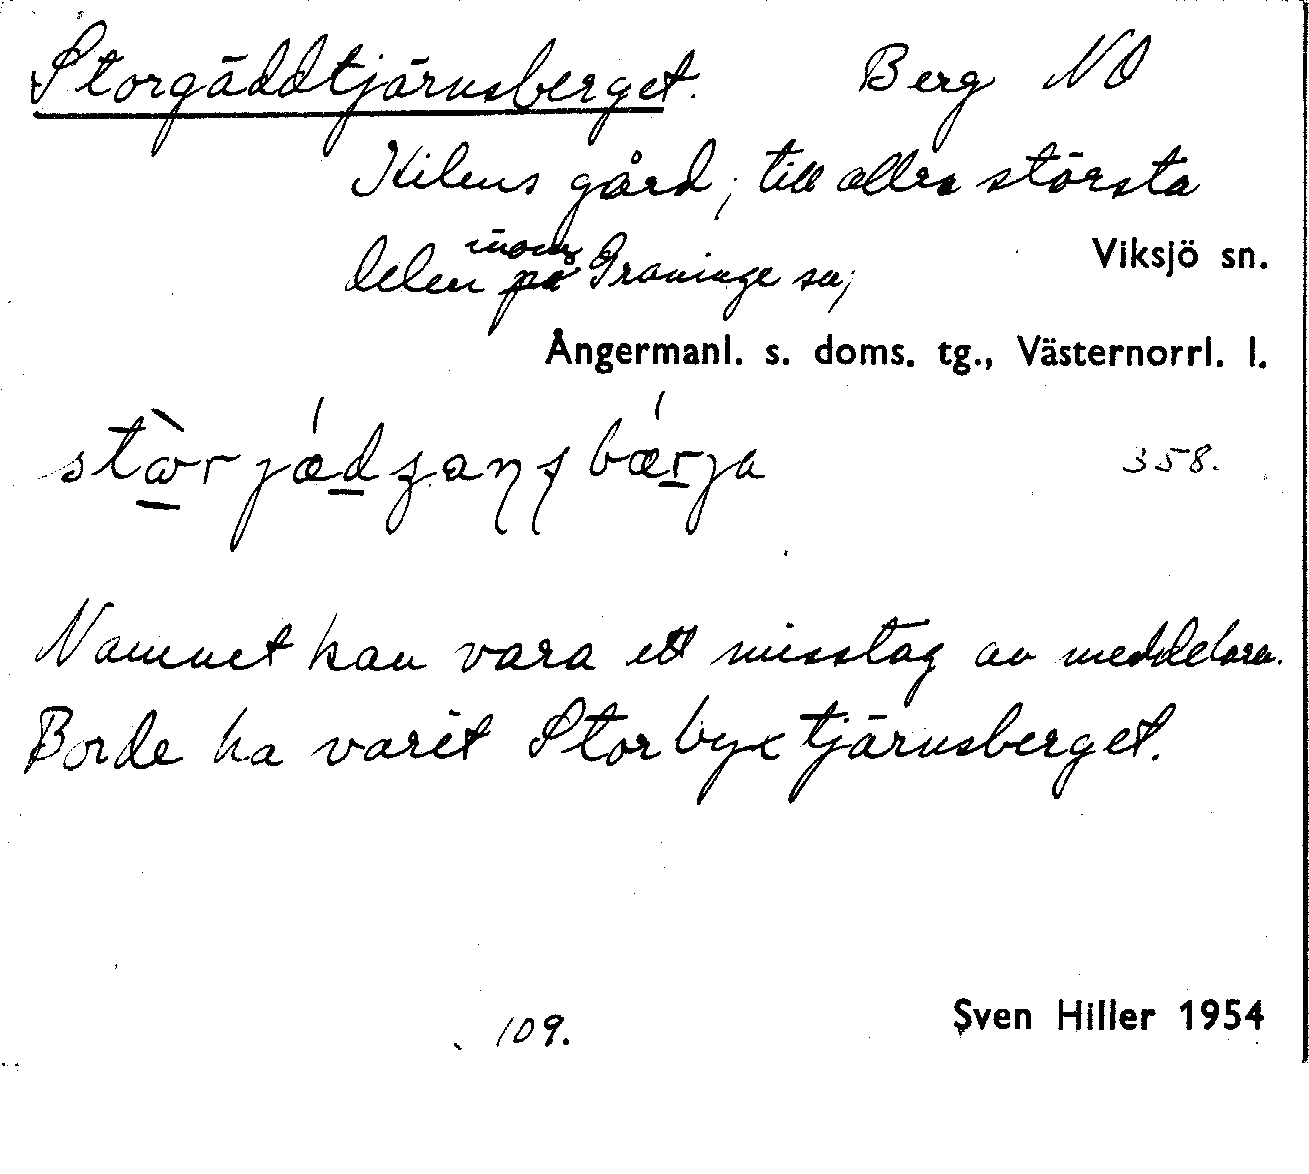 Storgäddtjärnsberget. Berg NO
Kilens gård, till allra största
delen inom på Graninge sn,
Viksjö sn.
Ångermanl. s. doms. tg., Västernorrl. l.
358.
Namnet kan vara ett misstag av meddelaren.
Borde ha varit Storbyxtjärnsberget.
109.
Sven Hiller 1954